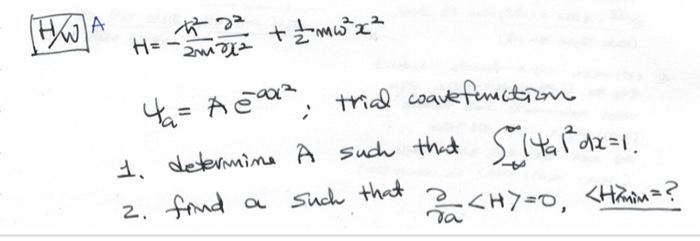 H/W A H = -ħ²/2m ∂²/∂x² + 1/2 mω²x²
ψₐ = A e^(-ax²) ; trial wavefunction
1. determine A such that ∫_{-∞}^{∞} |ψₐ|² dx = 1.
2. find a such that ∂/∂a <H> = 0, <H>min = ?